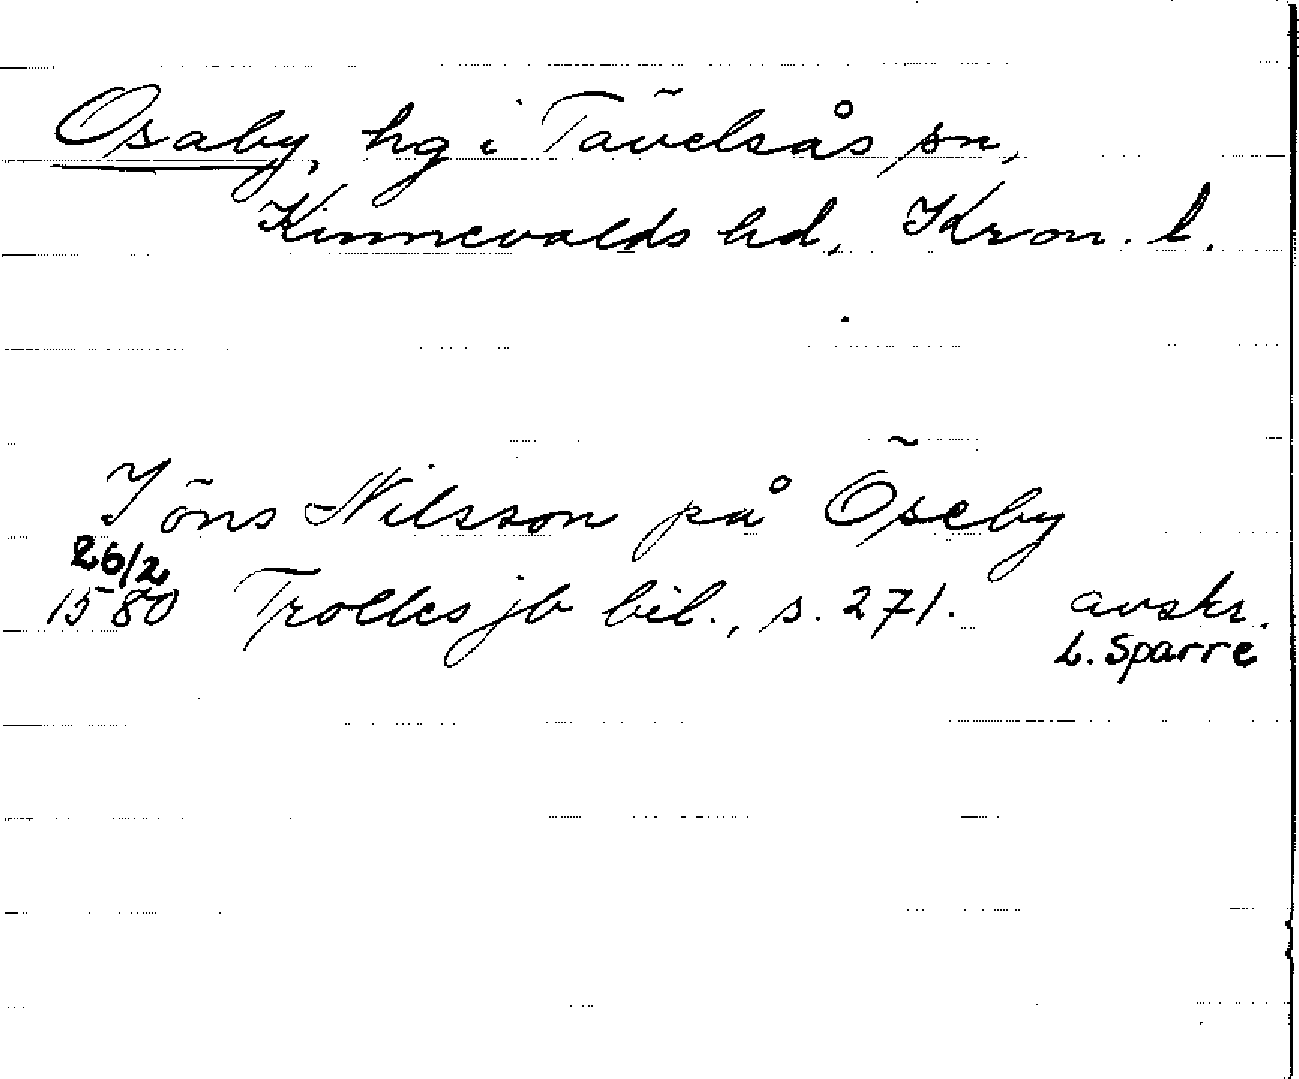 Osaby, hg i Tävelsås sn,
Kinnevalds hd, Kron. l.
Jöns Nilsson på Öseby
26/2
1580 Trolles jb bil., s. 271. avskr.
L. Sparre